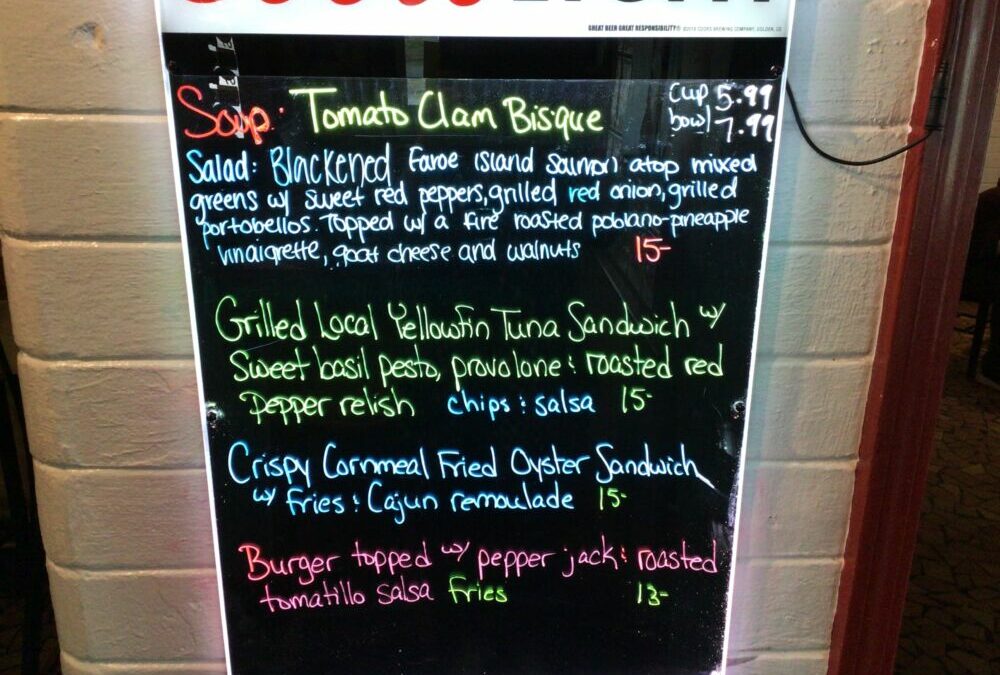 GREAT BEER GREAT RESPONSIBILITY®
Soup: Tomato Clam Bisque
cup 5.99
bowl 7.99
Salad: Blackened Faroe Island Salmon atop mixed
greens w/ sweet red peppers, grilled red onion, grilled
portobellos. Topped w/ a fire roasted poblano-pineapple
vinaigrette, goat cheese and walnuts 15-
Grilled Local Yellowfin Tuna Sandwich w/
Sweet basil pesto, provolone & roasted red
pepper relish chips & salsa 15-
Crispy Cornmeal Fried Oyster Sandwich
w/ fries & Cajun remoulade 15-
Burger topped w/ pepper jack & roasted
tomatillo salsa fries 13-